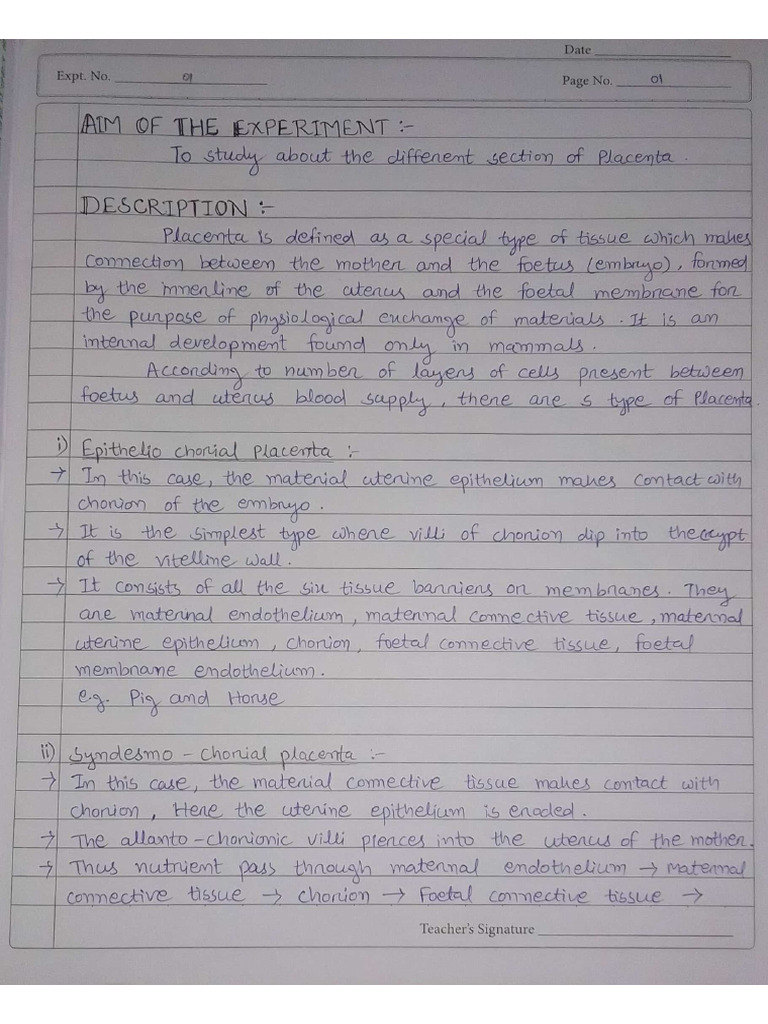 Date
Expt. No. 01
Page No. 01
AIM OF THE EXPERIMENT :-
To study about the different section of Placenta.
DESCRIPTION :-
Placenta is defined as a special type of tissue which makes
connection between the mother and the foetus (embryo), formed
by the innerline of the uterus and the foetal membrane for
the purpose of physiological exchange of materials. It is an
internal development found only in mammals.
According to number of layers of cells present between
foetus and uterus blood supply, there are 5 type of Placenta.
i) Epithelio chorial placenta :-
→ In this case, the material uterine epithelium makes contact with
chorion of the embryo.
→ It is the simplest type where villi of chorion dip into the crypt
of the vitelline wall.
→ It consists of all the six tissue barriers or membranes. They
are maternal endothelium, maternal connective tissue, maternal
uterine epithelium, chorion, foetal connective tissue, foetal
membrane endothelium.
e.g. Pig and Horse
ii) Syndesmo - chorial placenta :-
→ In this case, the material connective tissue makes contact with
chorion, Here the uterine epithelium is eroded.
→ The allanto-chorionic villi pierces into the uterus of the mother.
→ Thus nutrient pass through maternal endothelium → Maternal
connective tissue → chorion → Foetal connective tissue →
Teacher's Signature